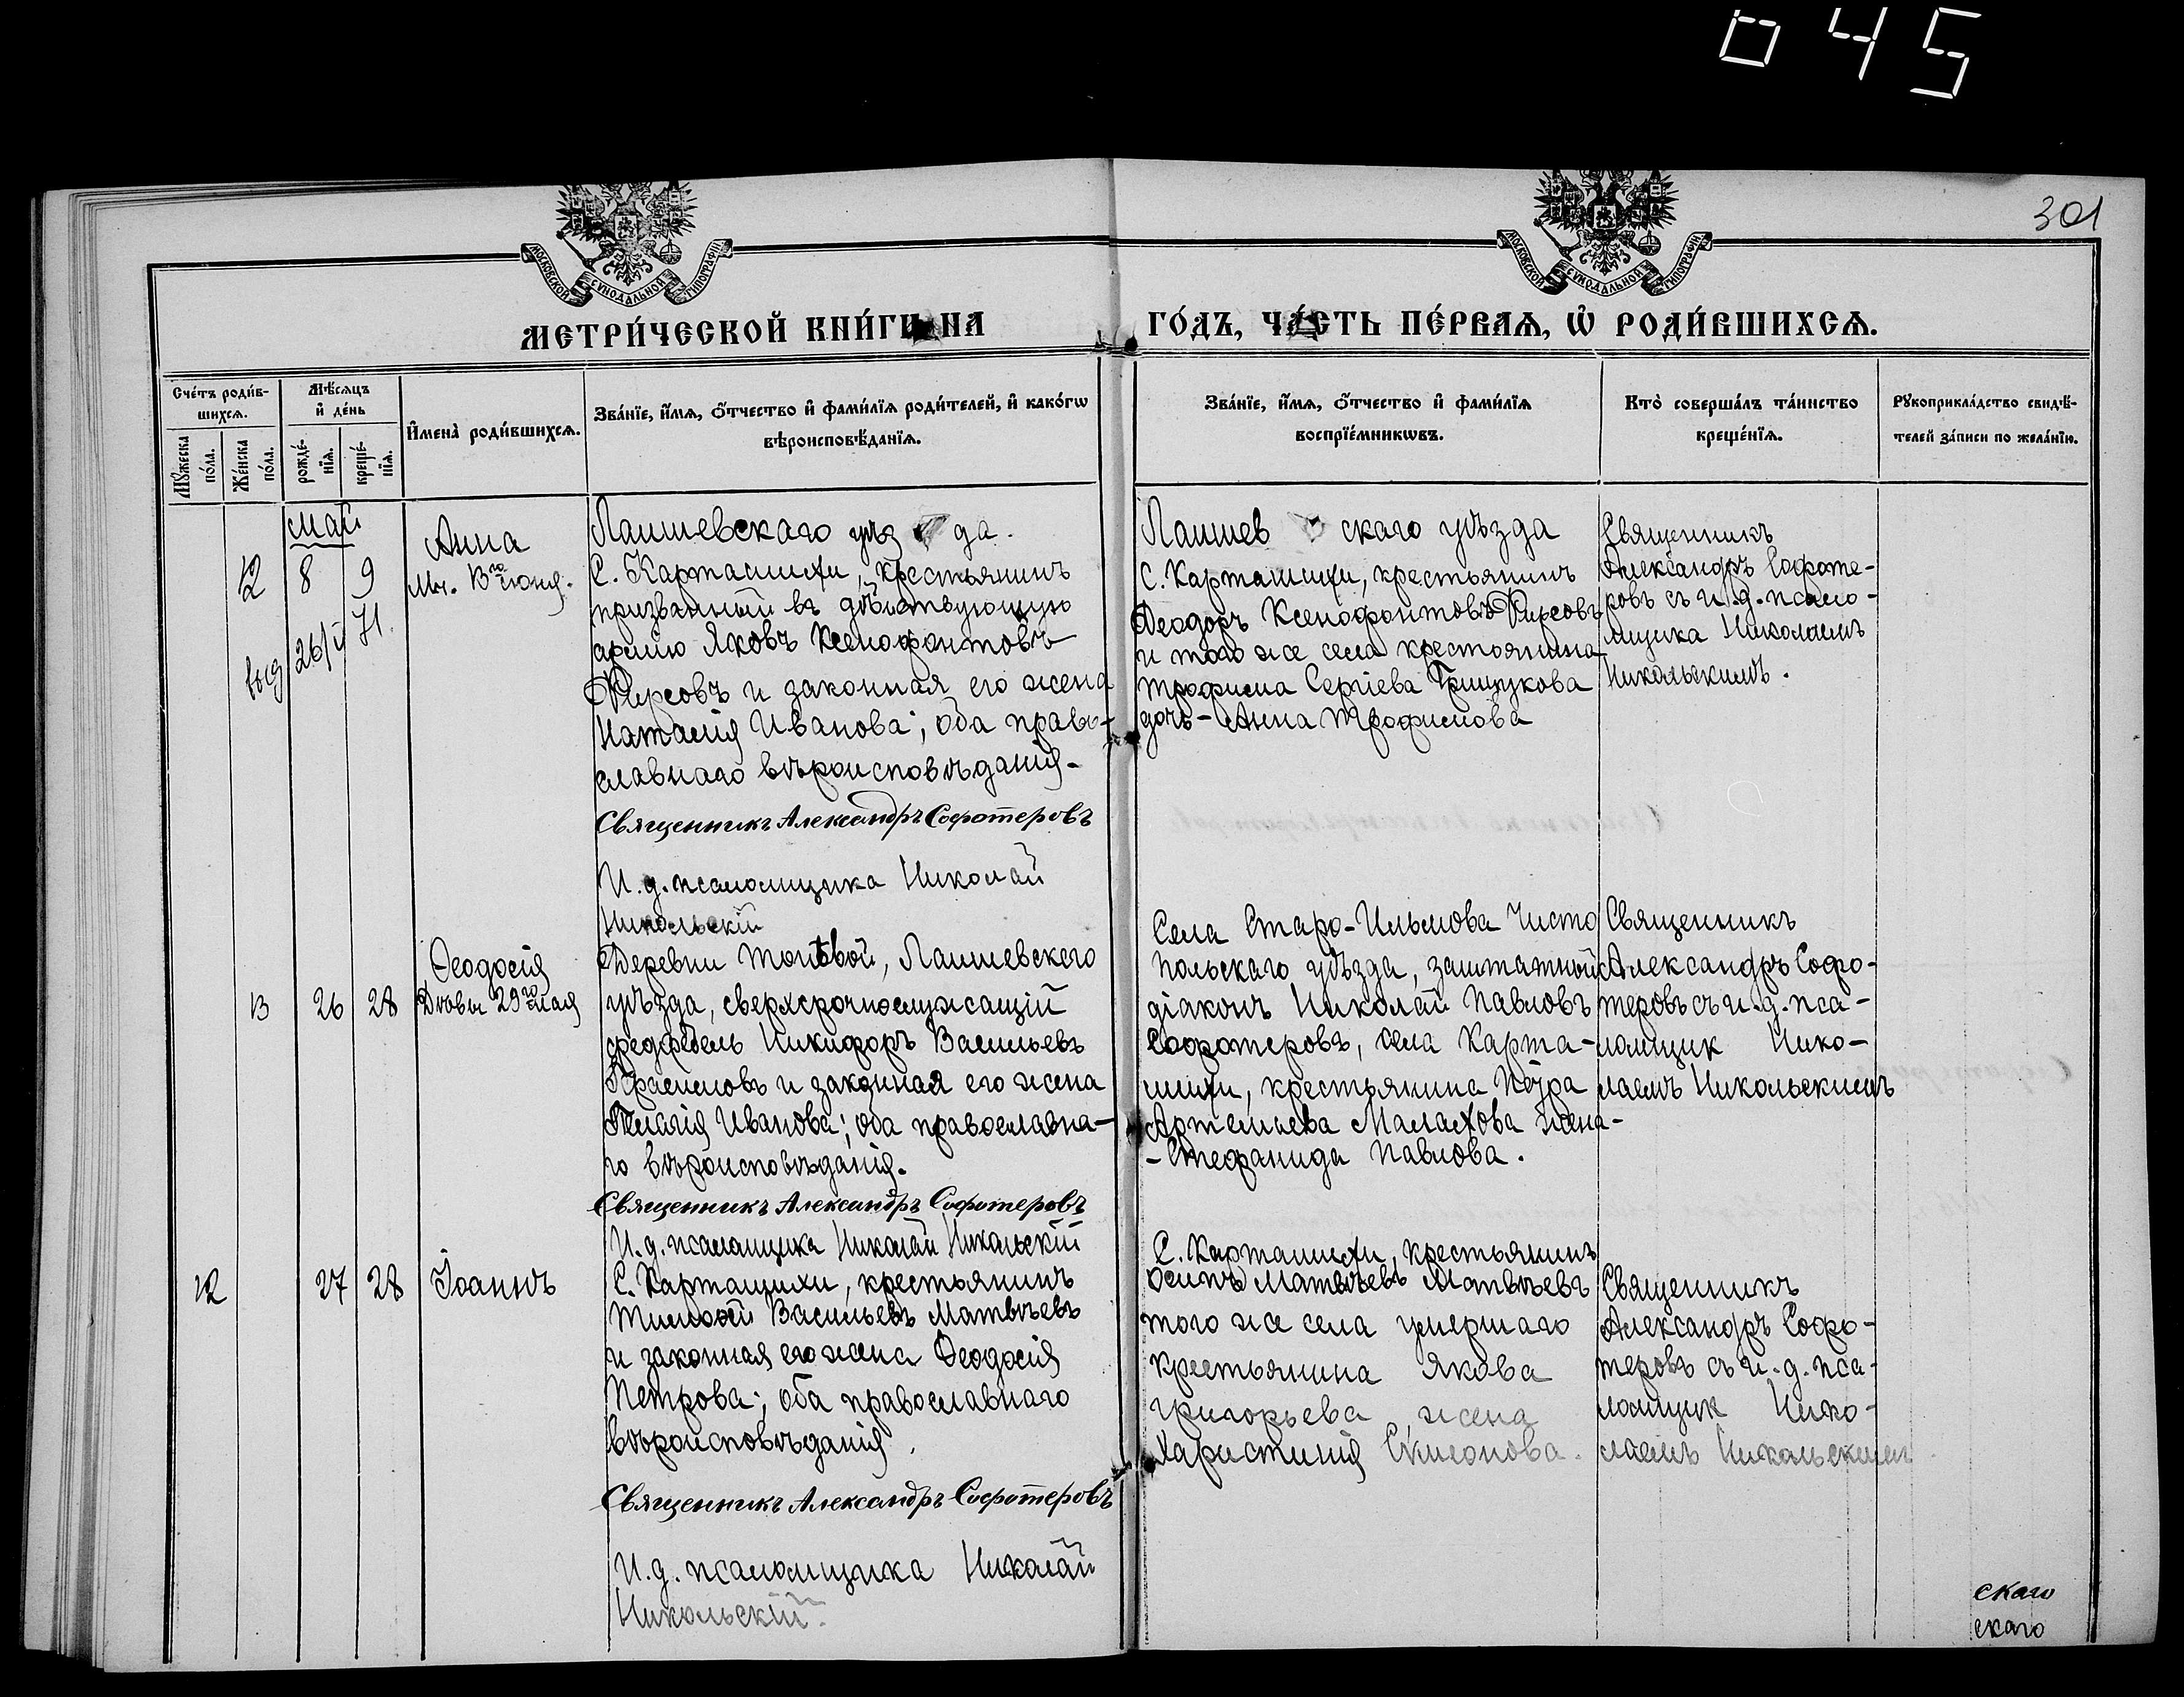 045
301
МОСКОВСКОЙ СѴНОДАЛЬНОЙ ТИПОГРАФІИ
МОСКОВСКОЙ СѴНОДАЛЬНОЙ ТИПОГРАФІИ
МЕТРИ́ЧЕСКОЙ КНИ́ГИ НА ГО́ДЪ, ЧА́СТЬ ПЕ́РВАѦ, Ѡ҆ РОДИ́ВШИХСѦ.
Сче́тъ роди́в-
шихсѧ.
Мꙋ́жеска
по́ла.
Же́нска
по́ла.
Мѣ́сѧцъ
и҆ де́нь
рожде́-
нїѧ.
креще́-
нїѧ.
И҆мена̀ роди́вшихсѧ.
Зва́нїе, и҆́мѧ, ѻ҆́тчество и҆ фамѝлїѧ роди́телей, и҆ како́гѡ
вѣроисповѣ́данїѧ.
Зва́нїе, и҆́мѧ, ѻ҆́тчество и҆ фамѝлїѧ
воспрїе́мникѡвъ.
Кто̀ соверша́лъ та́инство
креще́нїѧ.
Рꙋкоприкла́дство свидѣ́-
телей за́писи по жела́нїю.
май
12 8 9
выд 26/V 71.
Анна
Мч. 13го іюня.
Лаишевскаго уѣз да.
С. Карташихи, крестьянинъ
призванный въ дѣйствующую
армію Яковъ Ксенофонтовъ
Ѳирсовъ и законная его жена
Наталія Иванова; оба право-
славнаго вѣроисповѣданія.
Священникъ Александръ Софотеровъ
И. д. псаломщика Николай
Никольскій
Лаишев скаго уѣзда
с. Карташихи, крестьянинъ
Ѳеодоръ Ксенофонтовъ Ѳирсовъ
и того же села крестьянина
Трофима Сергіева Грицукова
дочь - Анна Трофимова
Священникъ
Александръ Софоте-
ровъ съ и. д. псало-
мщика Николаемъ
Никольскимъ.
13 26 28
Ѳеодосія
Дѣвы 29го мая
Деревни , Лаишевскаго
уѣзда, сверхсрочнослужащій
фельдфебель Никифоръ Васильевъ
Герасимовъ и законная его жена
Пелагія Иванова; оба православна-
го вѣроисповѣданія.
Священникъ Александръ Софотеровъ
И. д. псаломщика Николай Никольскій
Села Старо-Ильмова Чисто
польскаго уѣзда, заштатный
діаконъ Николай Павловъ
Софотеровъ, села Карта-
шихи, крестьянина Петра
Артемьева Малахова жена-
- Стефанида Павлова.
Священникъ
Александръ Софо-
теровъ съ и. д. пса-
ломщик Нико-
лаемъ Никольскимъ
12 27 28
Іоаннъ
С. Карташихи, крестьянинъ
Тимоѳей Васильевъ Матвѣевъ
и законная его жена Ѳеодосія
Петрова; оба православнаго
вѣроисповѣданія.
Священникъ Александръ Софотеровъ
И. д. псаломщика Николай
Никольскій.
С. Карташихи, крестьянинъ
Осипъ Матвѣевъ Матвѣевъ
того же села умершаго
крестьянина Якова
Григорьева жена
Харистинія Симонова.
Священникъ
Александръ Софо-
теровъ съ и. д. пса-
ломщик Нико-
лаемъ Никольскимъ
скаго
скаго